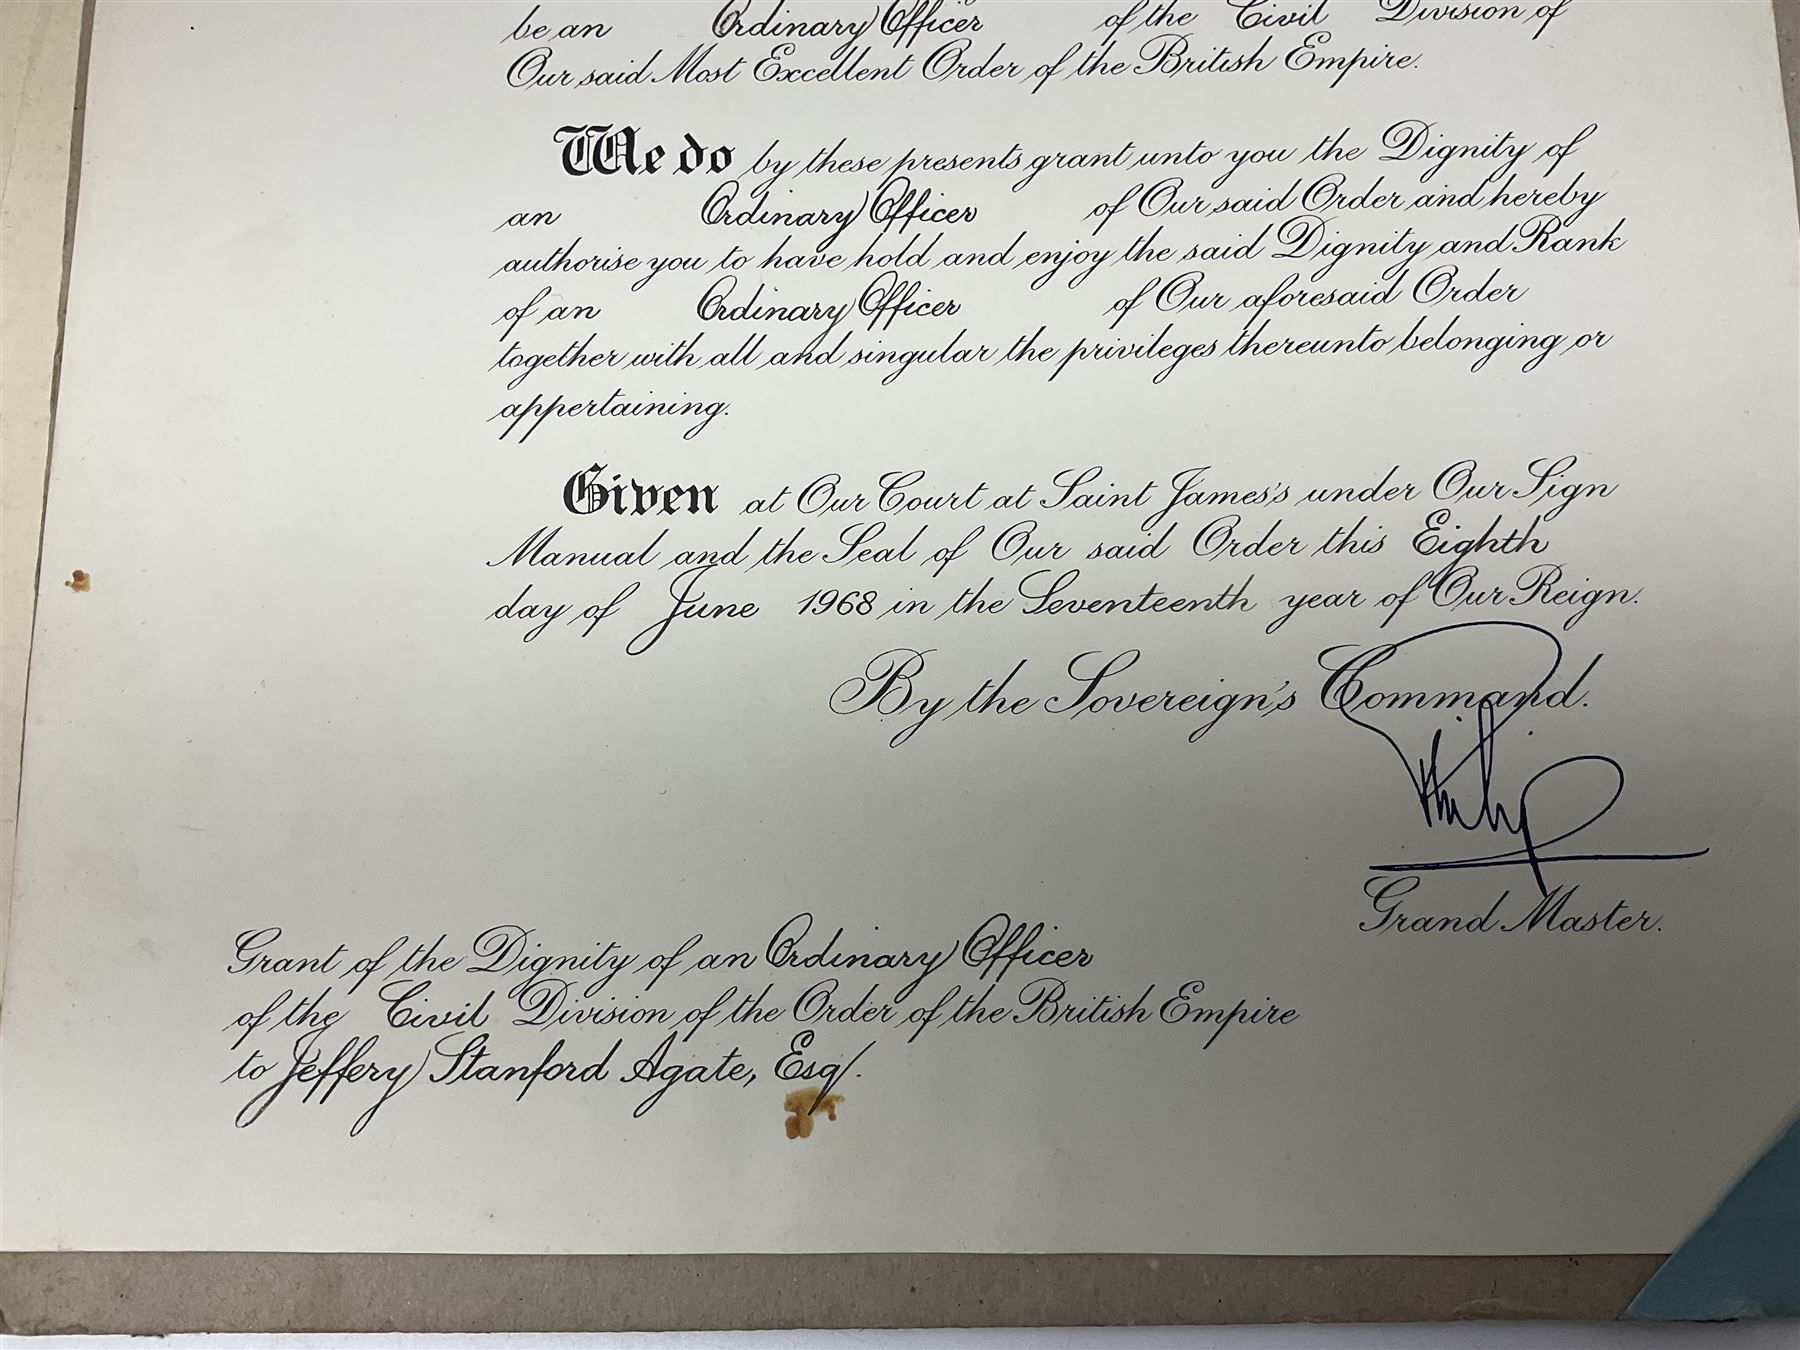 be an Ordinary Officer of the Civil Division of
Our said Most Excellent Order of the British Empire.
We do by these presents grant unto you the Dignity of
an Ordinary Officer of Our said Order and hereby
authorise you to have hold and enjoy the said Dignity and Rank
of an Ordinary Officer of Our aforesaid Order
together with all and singular the privileges thereunto belonging or
appertaining.
Given at Our Court at Saint James's under Our Sign
Manual and the Seal of Our said Order this Eighth
day of June 1968 in the Seventeenth year of Our Reign.
By the Sovereign's Command.
Philip
Grand Master.
Grant of the Dignity of an Ordinary Officer
of the Civil Division of the Order of the British Empire
to Jeffery Stanford Agate, Esq.